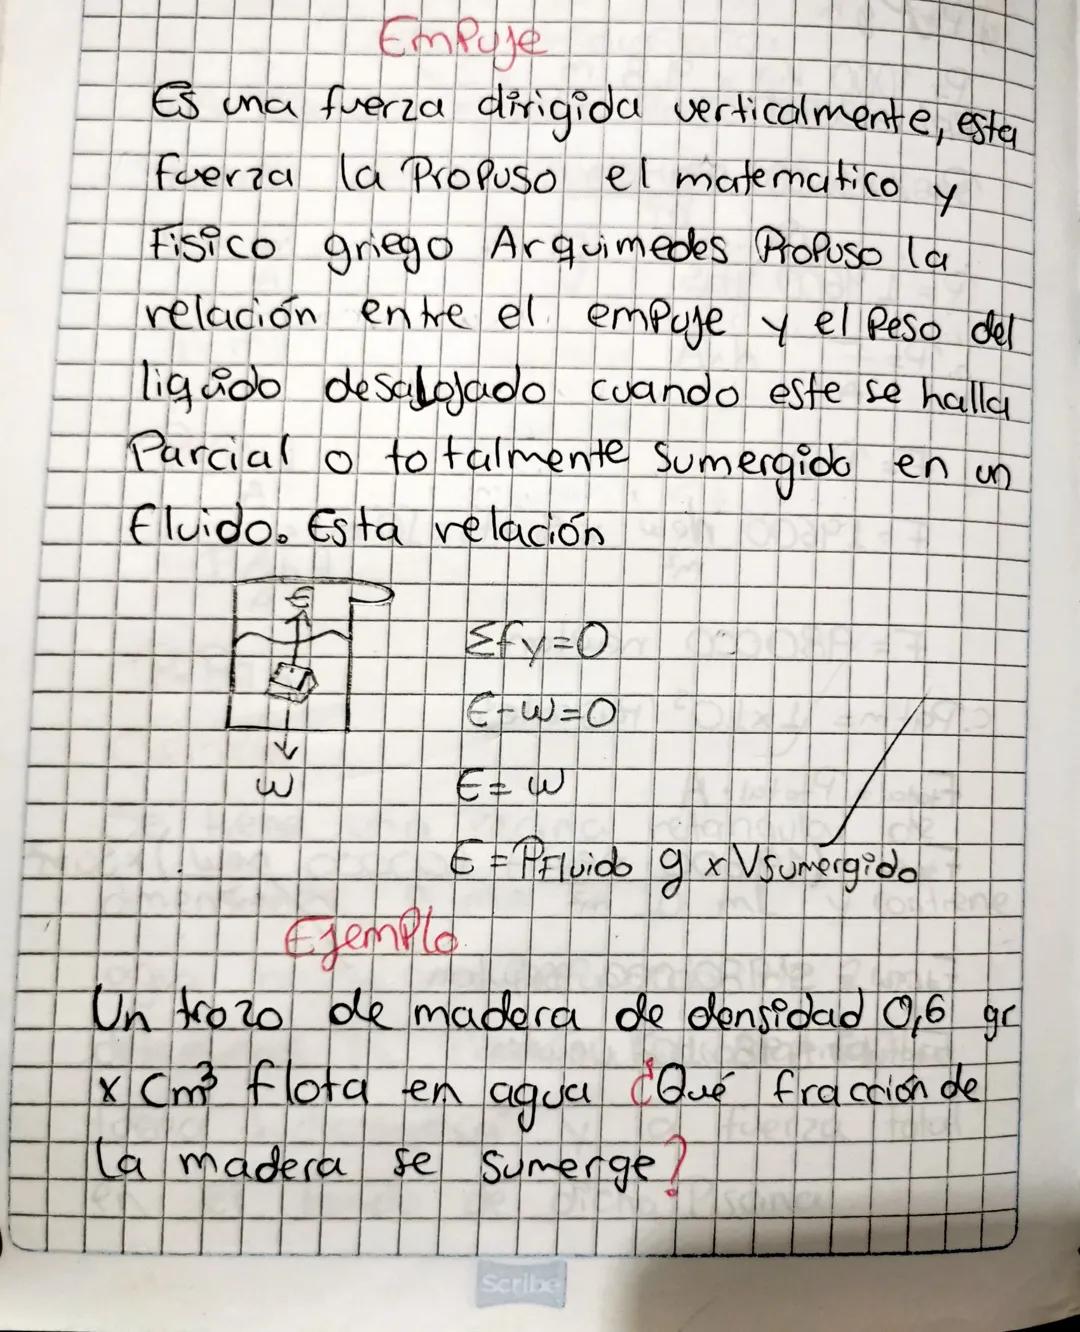 Empuje
Es una fuerza dirigida verticalmente, esta
fuerza la Propuso el matematico y
Fisico griego Arquimedes Propuso la
relación entre el empuje y el Peso del
liquido desalojado cuando este se halla
Parcial o totalmente sumergido en un
fluido. Esta relación
E
Σfy=0
E-W=0
W
E= W
E = PFluido g x Vsumergido
Ejemplo
Un trozo de madera de densidad 0,6 gr
x Cm³ flota en agua ¿Qué fracción de
la madera se sumerge?
Scribe